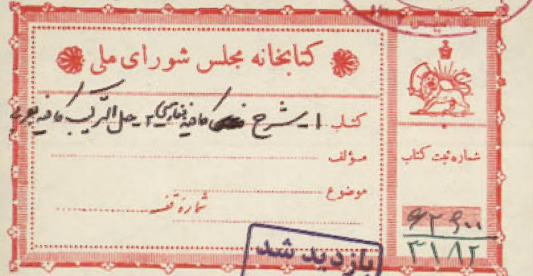 کتابخانه مجلس شورای ملی
کتاب ۱ـ شرح کافیه فارسی ۲ـ حل الترکیب کافیه
مؤلف
موضوع
شماره قفسه
شماره ثبت کتاب
۶۲۹۰۰
۳۱۸۲
بازدید شد